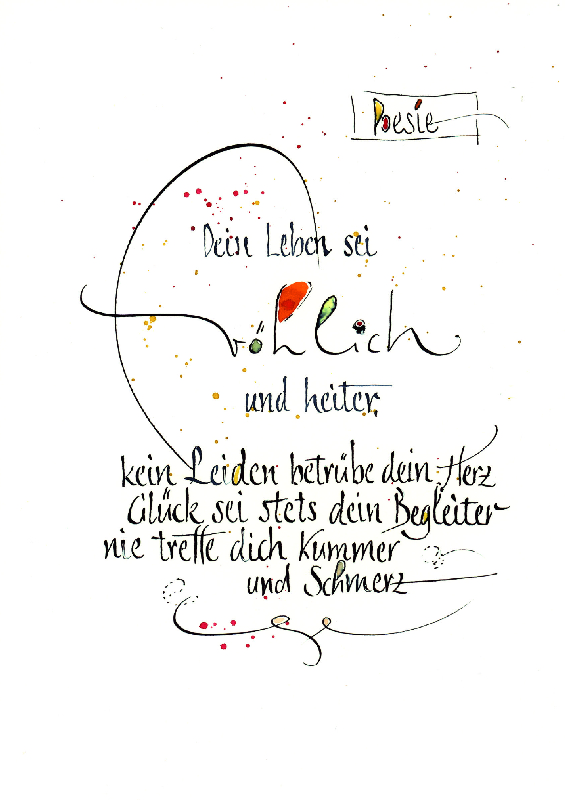 Poesie
Dein Leben sei
fröhlich
und heiter,
kein Leiden betrübe dein Herz
Glück sei stets dein Begleiter
nie treffe dich Kummer
und Schmerz